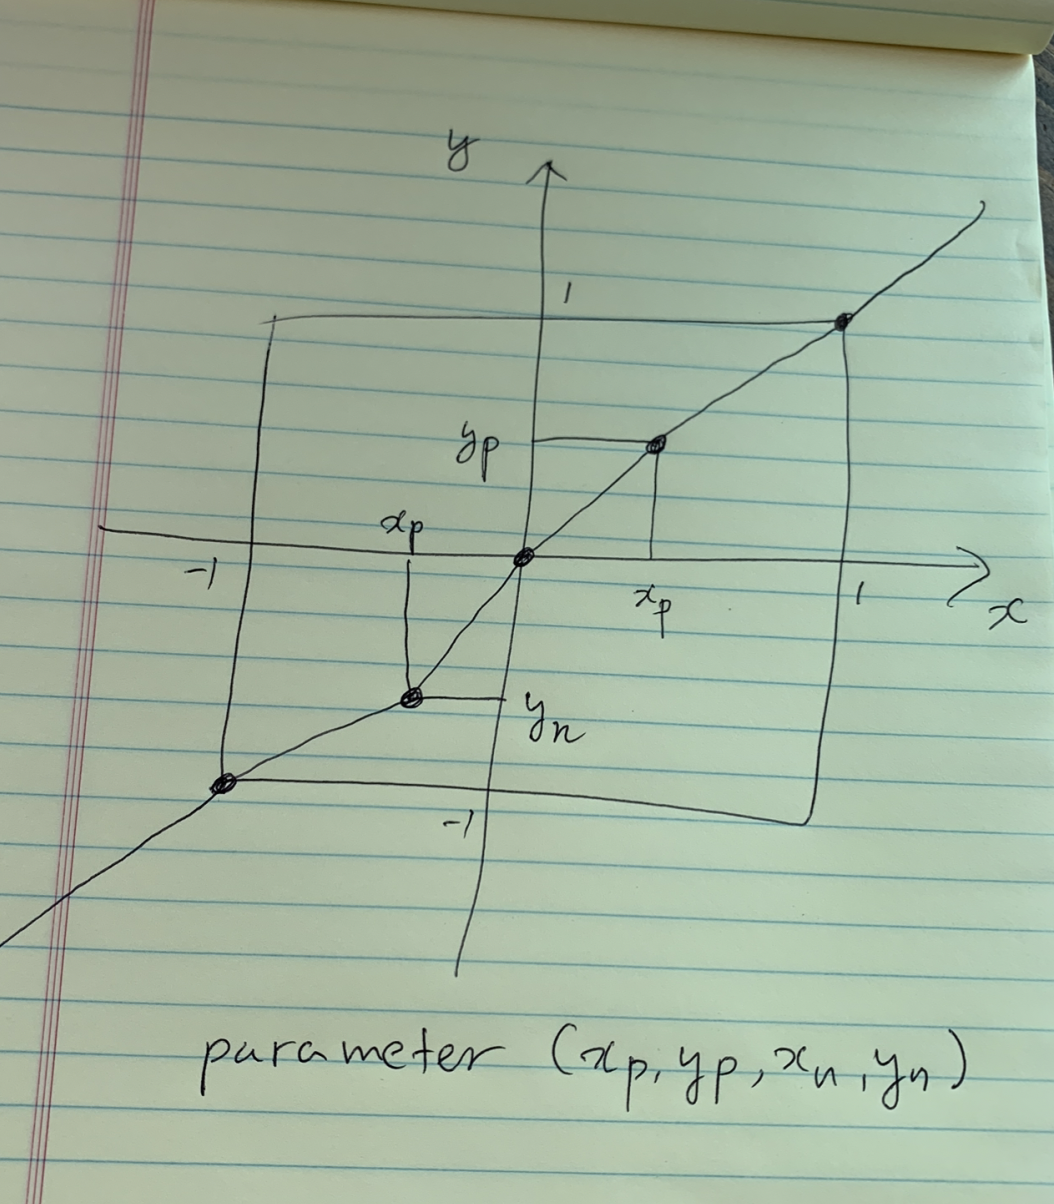 y
1
yp
xp
-1
xp
1
x
yn
-1
parameter (xp, yp, xn, yn)